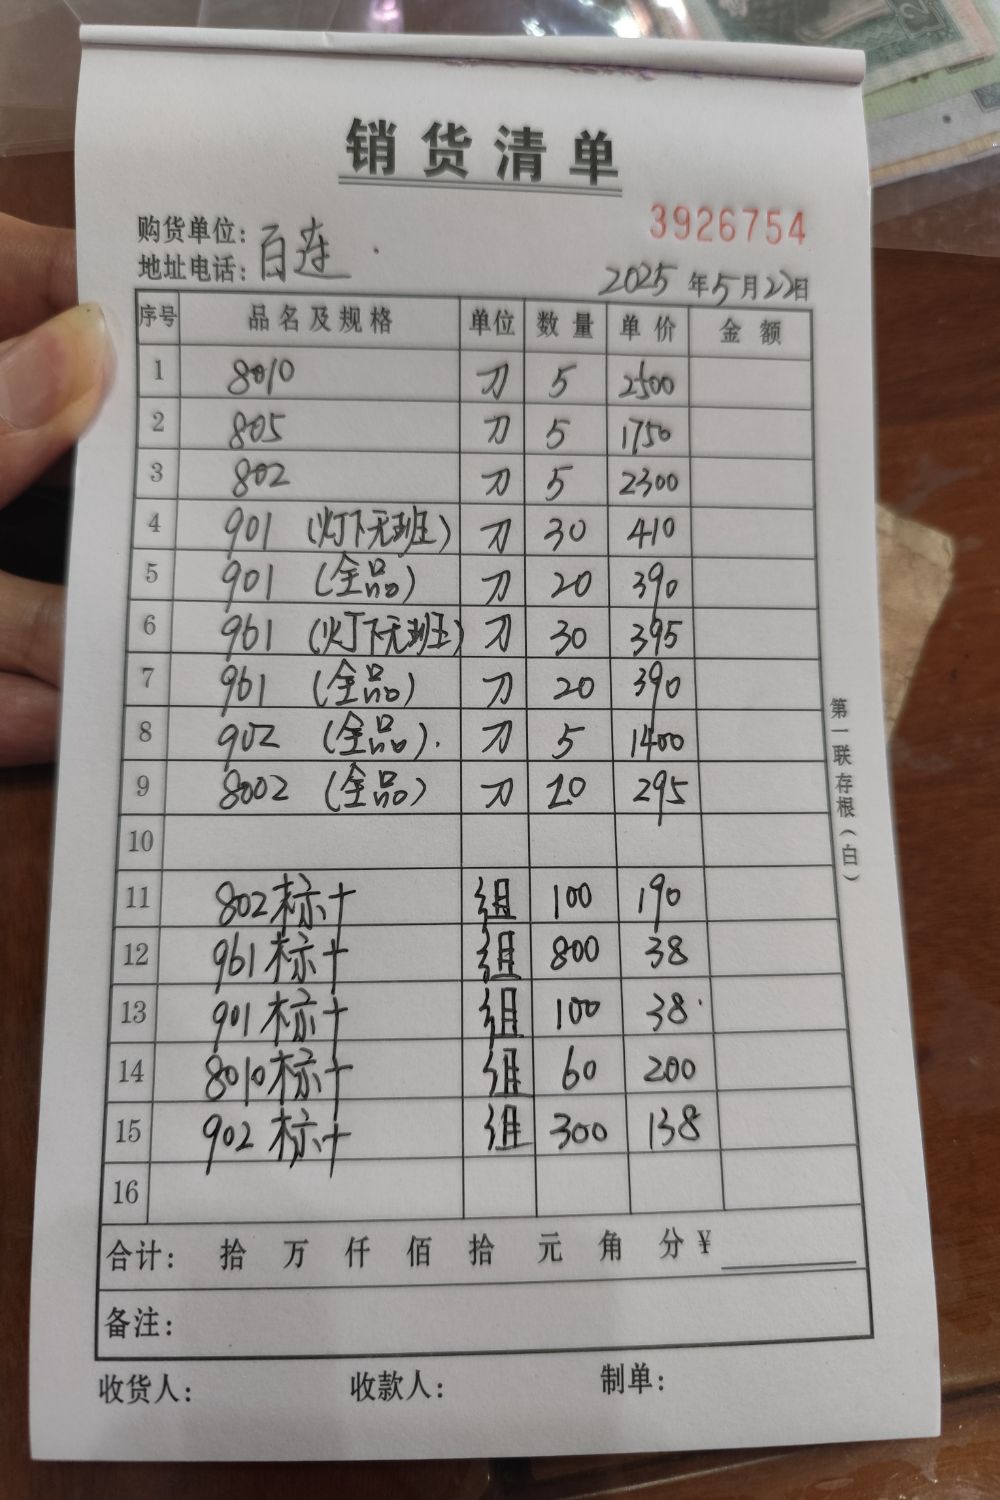 销货清单
3926754
购货单位：百连
地址电话：
2025年5月22日
序号 品名及规格 单位 数量 单价 金额
1 8010 刀 5 2500
2 805 刀 5 1750
3 802 刀 5 2300
4 901 (灯下无斑) 刀 30 410
5 901 (全品) 刀 20 390
6 961 (灯下无斑) 刀 30 395
7 961 (全品) 刀 20 390
8 902 (全品). 刀 5 1400
9 8002 (全品) 刀 10 295
10
11 802标十 组 100 190
12 961标十 组 800 38
13 901标十 组 100 38
14 8010标十 组 60 200
15 902标十 组 300 138
16
合计： 拾 万 仟 佰 拾 元 角 分 ¥
备注：
收货人： 收款人： 制单：
第一联存根（白）